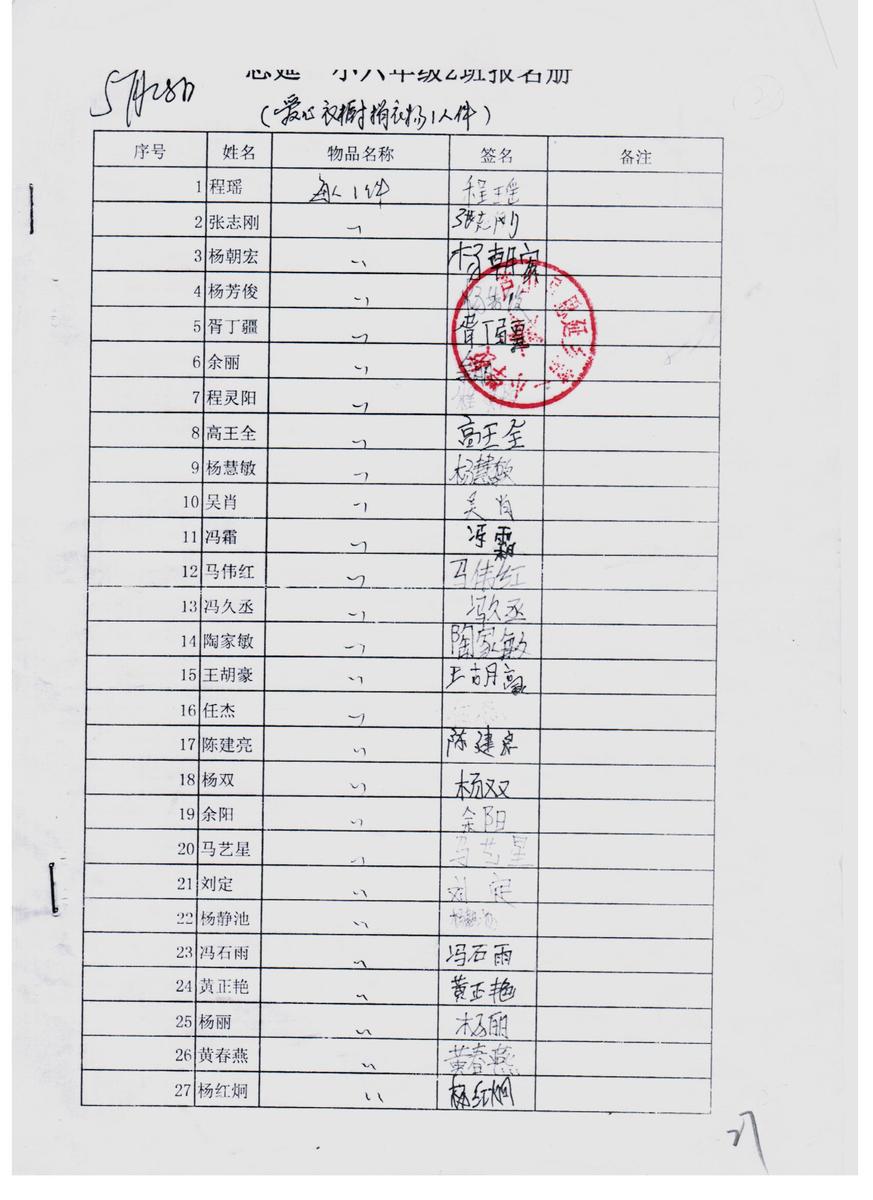 5月28日
思延一小六年级2班报名册
(爱心衣橱捐衣物1人件)
序号 姓名 物品名称 签名 备注
1 程瑶 每人1件 程瑶
2 张志刚 〃 张志刚
3 杨朝宏 〃 杨朝宏
4 杨芳俊 〃 杨芳俊
5 胥丁疆 〃 胥丁疆
6 余丽 〃 余丽
7 程灵阳 〃
8 高王全 〃 高王全
9 杨慧敏 〃 杨慧敏
10 吴肖 〃 吴肖
11 冯霜 〃 冯霜
12 马伟红 〃 马伟红
13 冯久丞 〃 冯久丞
14 陶家敏 〃 陶家敏
15 王胡豪 〃 王胡豪
16 任杰 〃
17 陈建亮 〃 陈建亮
18 杨双 〃 杨双
19 余阳 〃 余阳
20 马艺星 〃 马艺星
21 刘定 〃 刘定
22 杨静池 〃 杨静池
23 冯石雨 〃 冯石雨
24 黄正艳 〃 黄正艳
25 杨丽 〃 杨丽
26 黄春燕 〃 黄春燕
27 杨红炯 〃 杨红炯
27